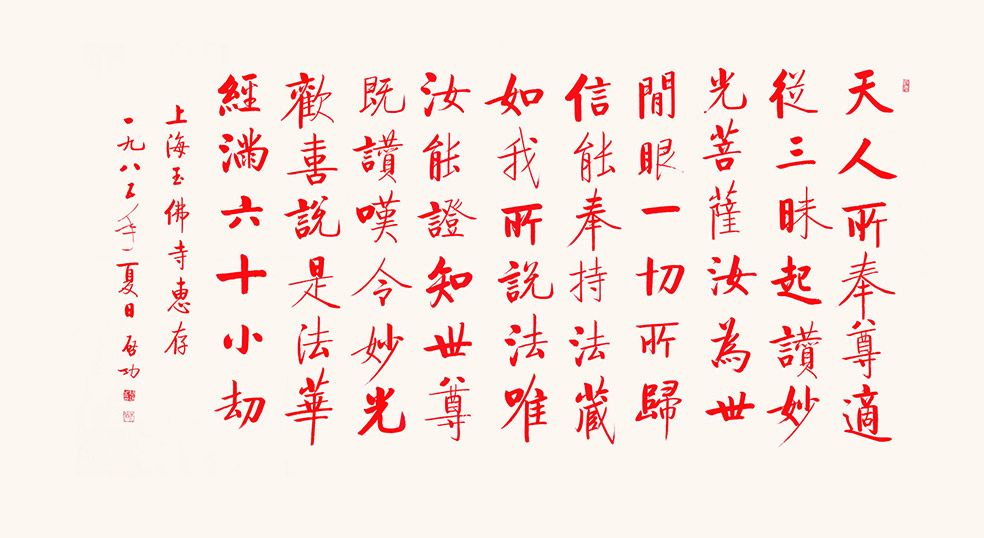 天人所奉尊適
從三昧起讃妙
光菩薩汝為世
間眼一切所歸
信能奉持法藏
如我所説法唯
汝能證知世尊
既讃嘆令妙光
歡喜説是法華
經滿六十小劫
上海玉佛寺惠存
一九八五年夏日 啟功